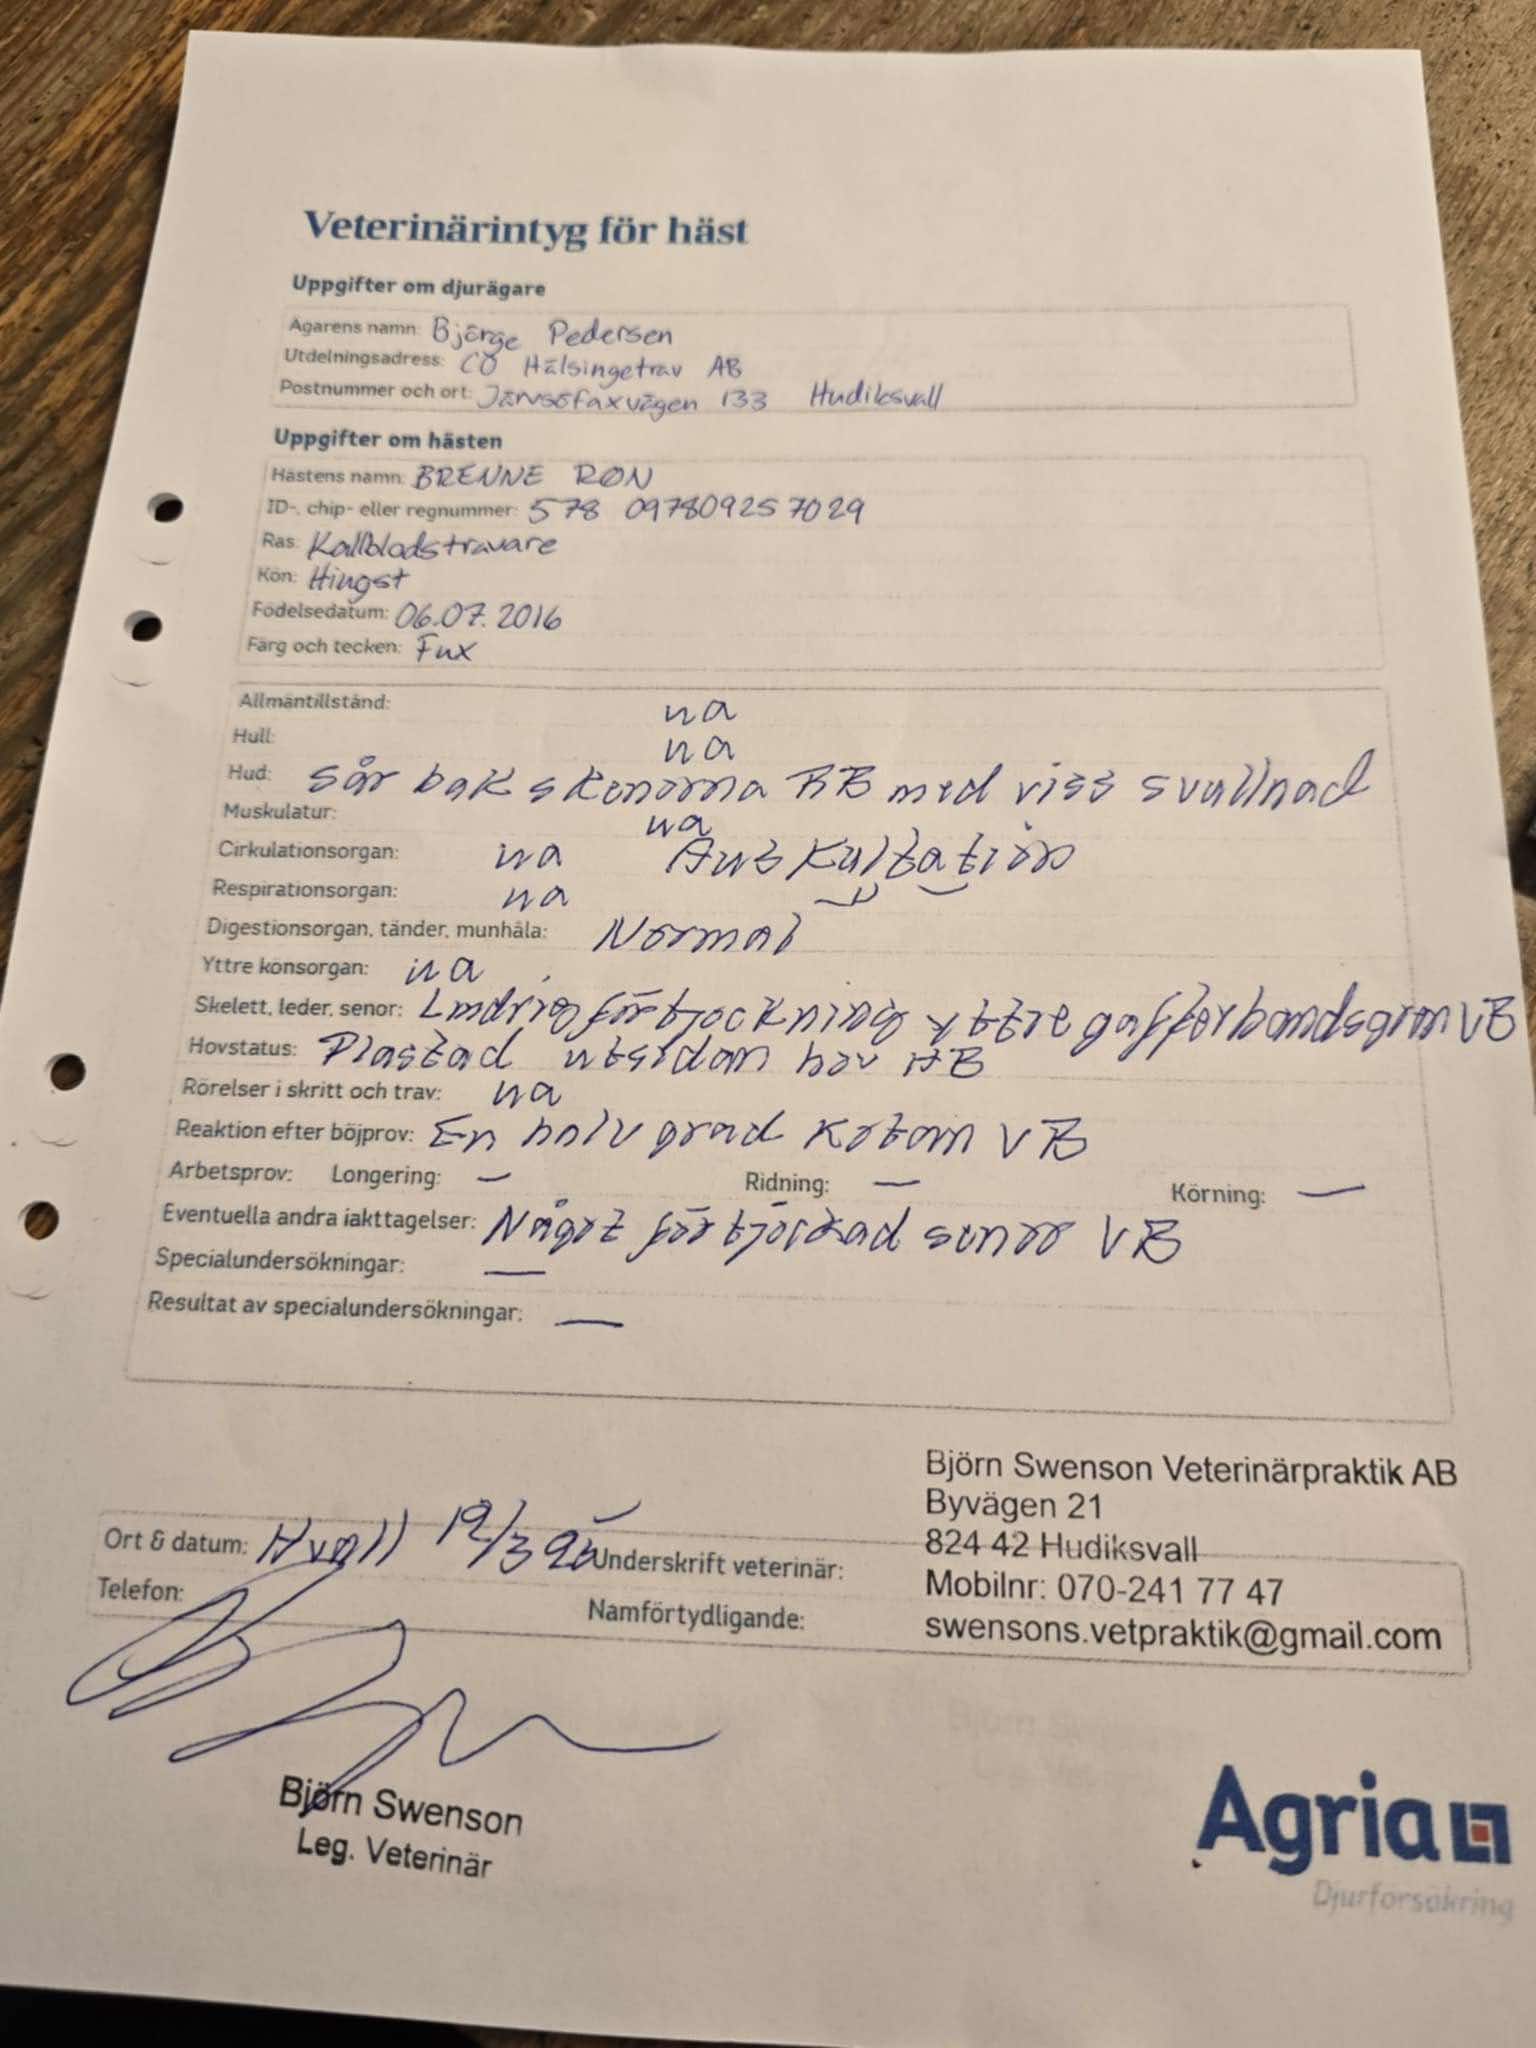 Veterinärintyg för häst
Uppgifter om djurägare
Ägarens namn: Björge Pedersen
Utdelningsadress: CO Hälsingetrav AB
Postnummer och ort: Järvsöfaxvägen 133 Hudiksvall
Uppgifter om hästen
Hästens namn: BRENNE RØN
ID-, chip- eller regnummer: 578 097809257029
Ras: Kallblodstravare
Kön: Hingst
Födelsedatum: 06.07.2016
Färg och tecken: Fux
Allmäntillstånd: ua
Hull: ua
Hud: sår bak skenorna BB med viss svullnad
Muskulatur: ua
Cirkulationsorgan: ua Auskultation
Respirationsorgan: ua
Digestionsorgan, tänder, munhåla: Normal
Yttre könsorgan: ua
Skelett, leder, senor: Lindrig förtjockning yttre gafferbandsgren VB
Hovstatus: Plastad utsidan hov HB
Rörelser i skritt och trav: ua
Reaktion efter böjprov: En halv grad kotan VB
Arbetsprov: Longering: — Ridning: — Körning: —
Eventuella andra iakttagelser: Något förtjockad senor VB
Specialundersökningar: —
Resultat av specialundersökningar: —
Björn Swenson Veterinärpraktik AB
Byvägen 21
824 42 Hudiksvall
Mobilnr: 070-241 77 47
swensons.vetpraktik@gmail.com
Ort & datum: Hvall 19/3 Underskrift veterinär:
Telefon: Namförtydligande:
Björn Swenson
Leg. Veterinär
Agria
Djurförsäkring